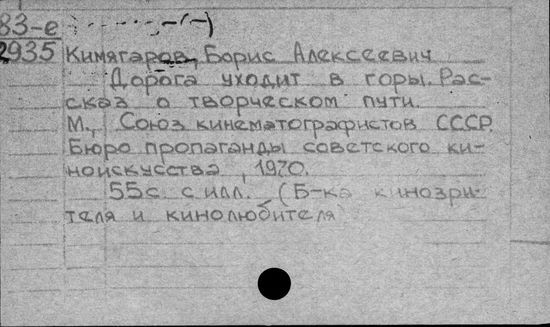 83-е
2935 Кимягаров, Борис Алексеевич
Дорога уходит в горы. Рас-
сказ о творческом пути.
М., Союз кинематографистов СССР.
Бюро пропаганды советского ки-
ноискусства, 1970.
55с. с илл. (Б-ка кинозри-
теля и кинолюбителя